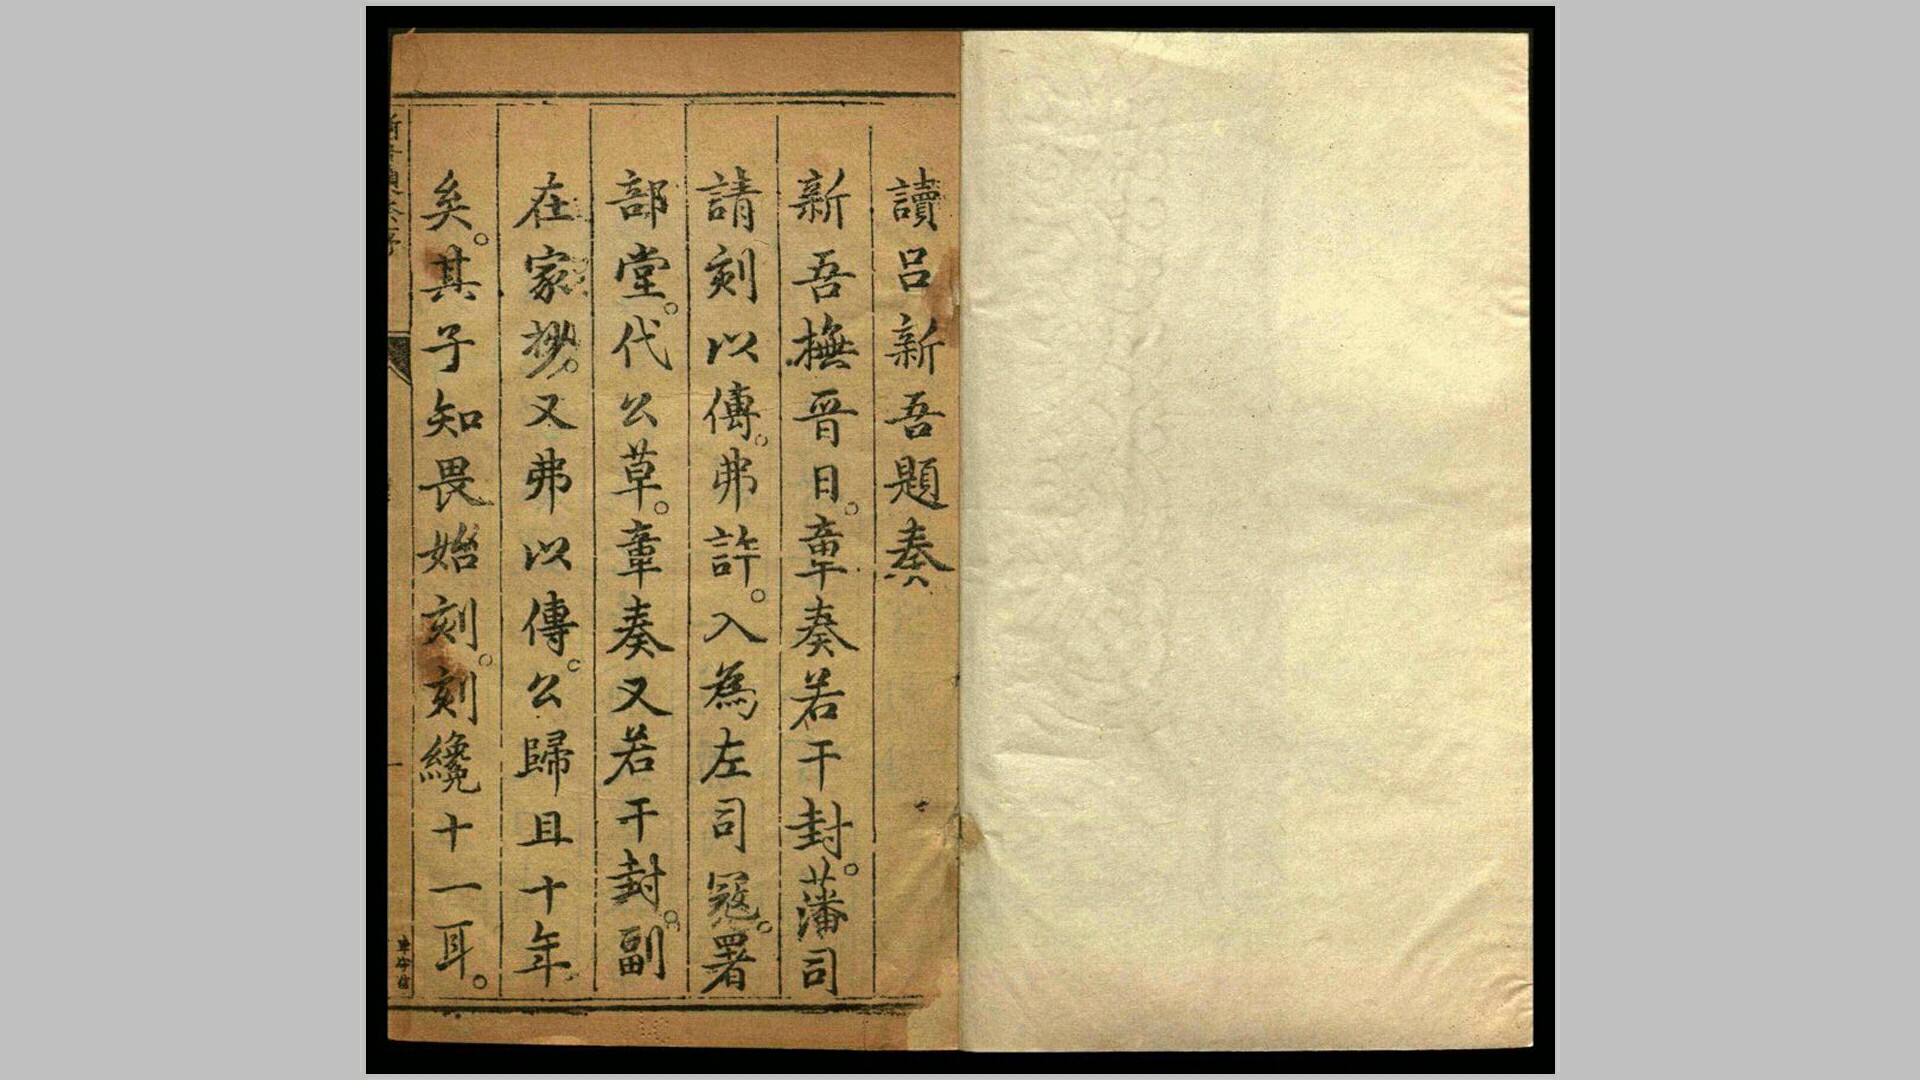 讀吕新吾題奏
新吾撫晉日。章奏若干封。藩司
請刻以傳。弗許。入為左司寇。署
部堂。代公草。章奏又若干封。副
在家抄。又弗以傳。公歸且十年
矣。其子知畏始刻。刻纔十一耳。